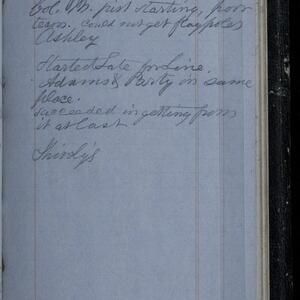 Col. Wm. just starting, poor
team. Could not get flag poles
Ashley
Started late for Line.
Adams & Party in same
place.
Succeeded in getting from
it at last
Shirely's